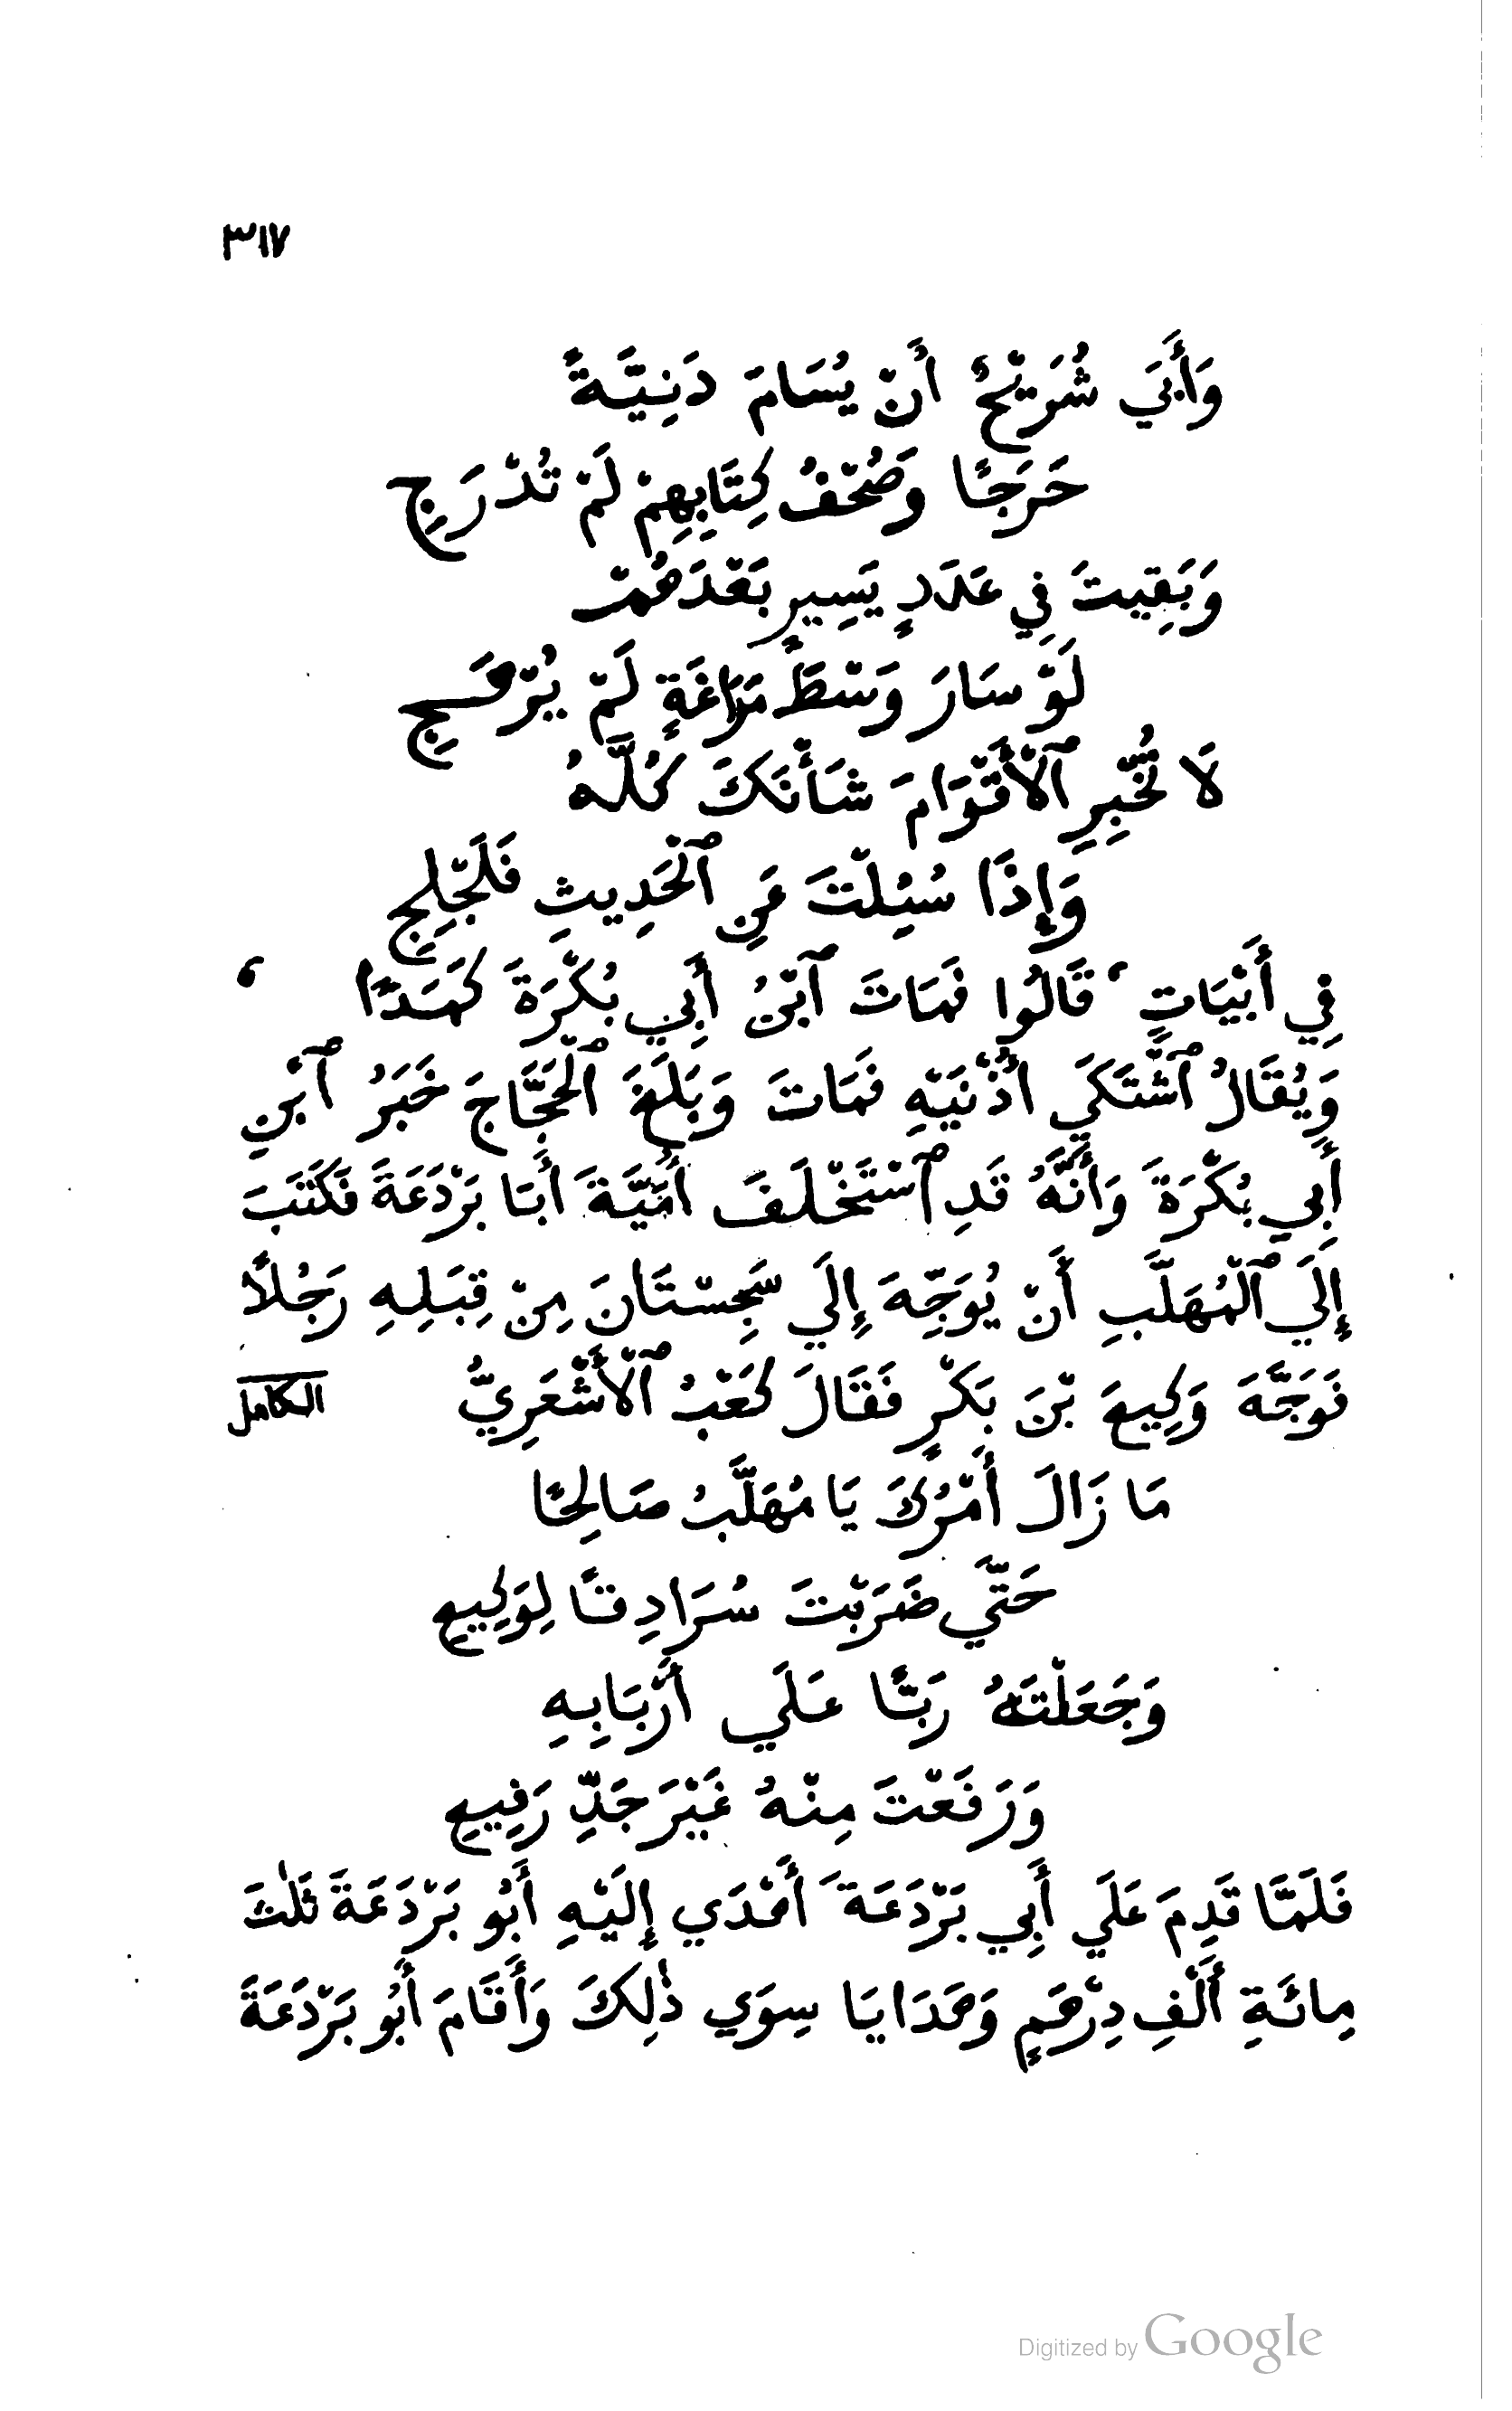 ٣١٧
وَأَبَي شُرَيْحٌ أَنْ يُسَامَ دَنِيَّةً
حَرَجًا وَصُحْفُ كِتَابِهِمْ لَمْ تُدْرَجِ
وَبَقِيتَ فِي عَدَدٍ يَسِيرٍ بَعْدَهُمْ
لَوْ سَارَ وَسْطَ مَرَاغَةٍ لَمْ يُرْهِجِ
لَا تُخْبِرِ ٱلْأَقْوَامَ شَأْنَكَ كُلَّهُ
وَإِذَا سُئِلْتَ عَنِ ٱلْحَدِيثِ فَلَجْلِجِ
فِي أَبْيَاتٍ ، قَالُوا فَمَاتَ ٱبْنُ أَبِي بُكْرَةَ كَمَدًا ،
وَيُقَالُ ٱشْتَكَي أُذْنَيْهِ فَمَاتَ وَبَلَغَ ٱلْحَجَّاجَ خَبَرُ ٱبْنِ
أَبِي بُكْرَةَ وَأَنَّهُ قَدِ ٱسْتَخْلَفَ أُمَيَّةَ أَبَا بَرْدَعَةَ فَكَتَبَ
إِلَي ٱلْمُهَلَّبِ أَنْ يُوَجِّهَ إِلَي سَجِسْتَانَ مِنْ قِبَلِهِ رَجُلًا
فَوَجَّهَ وَكِيعَ بْنَ بَكْرٍ فَقَالَ كَعْبُ ٱلْأَشْعَرِيُّ الكامل
مَا زَالَ أَمْرُكَ يَا مُهَلَّبُ صَالِحًا
حَتَّي ضَرَبْتَ سُرَادِقًا لِوَكِيعِ
وَجَعَلْتَهُ رَبًّا عَلَي أَرْبَابِهِ
وَرَفَعْتَ مِنْهُ غَيْرَ جَدِّ رَفِيعِ
فَلَمَّا قَدِمَ عَلَي أَبِي بَرْدَعَةَ أَهْدَي إِلَيْهِ أَبُو بَرْدَعَةَ ثَلٰثَ
مِائَةِ أَلْفِ دِرْهَمٍ وَهَدَايَا سِوَي ذٰلِكَ وَأَقَامَ أَبُو بَرْدَعَةَ
Digitized by Google